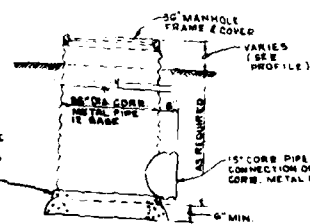 36" MANHOLE
FRAME & COVER
VARIES
(SEE
PROFILE)
36" DIA CORR.
METAL PIPE
12 GAGE
AS REQUIRED
15" CORR PIPE
CONNECTION
CORR. METAL
6" MIN.